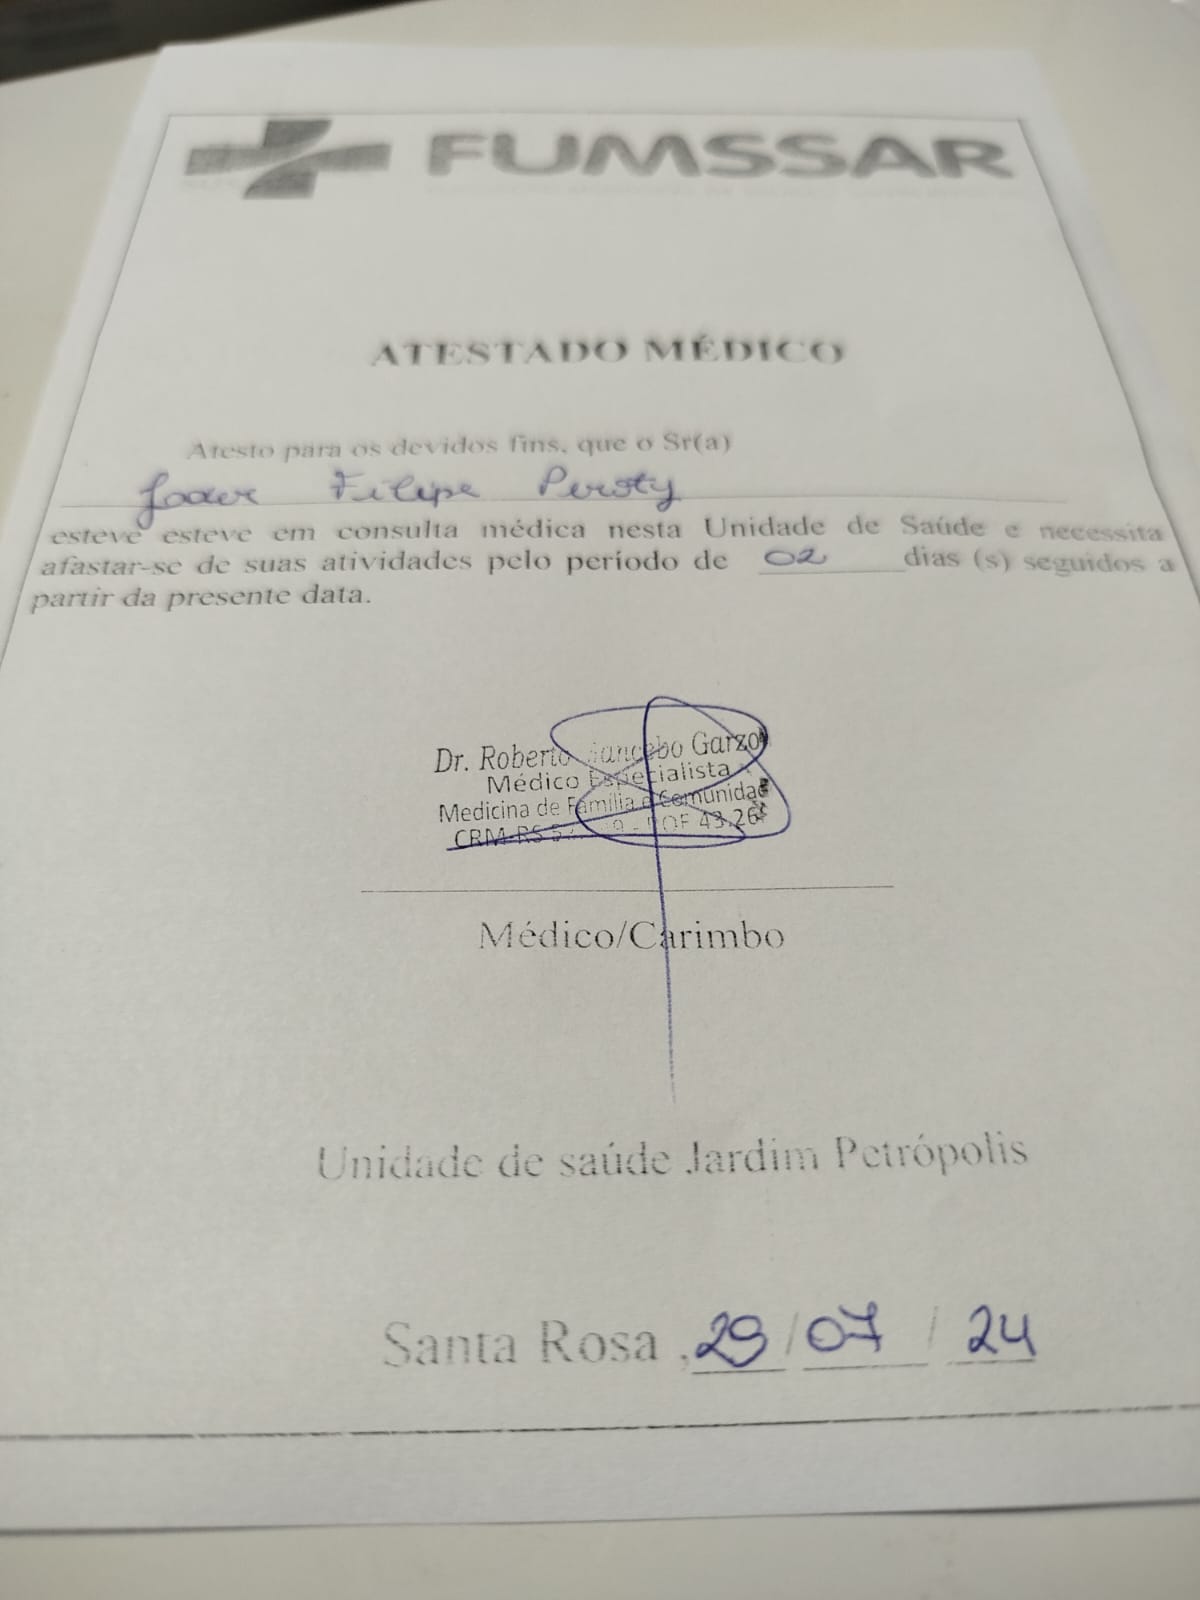 FUMSSAR
ATESTADO MÉDICO
Atesto para os devidos fins, que o Sr(a)
Filipe Peroty
esteve esteve em consulta médica nesta Unidade de Saúde e necessita
afastar-se de suas atividades pelo período de 02 dias (s) seguidos a
partir da presente data.
Dr. Roberto Garzo
Médico Especialista
Medicina de Família e Comunidade
CRM-RS
Médico/Carimbo
Unidade de saúde Jardim Petrópolis
Santa Rosa , 29 / 07 / 24